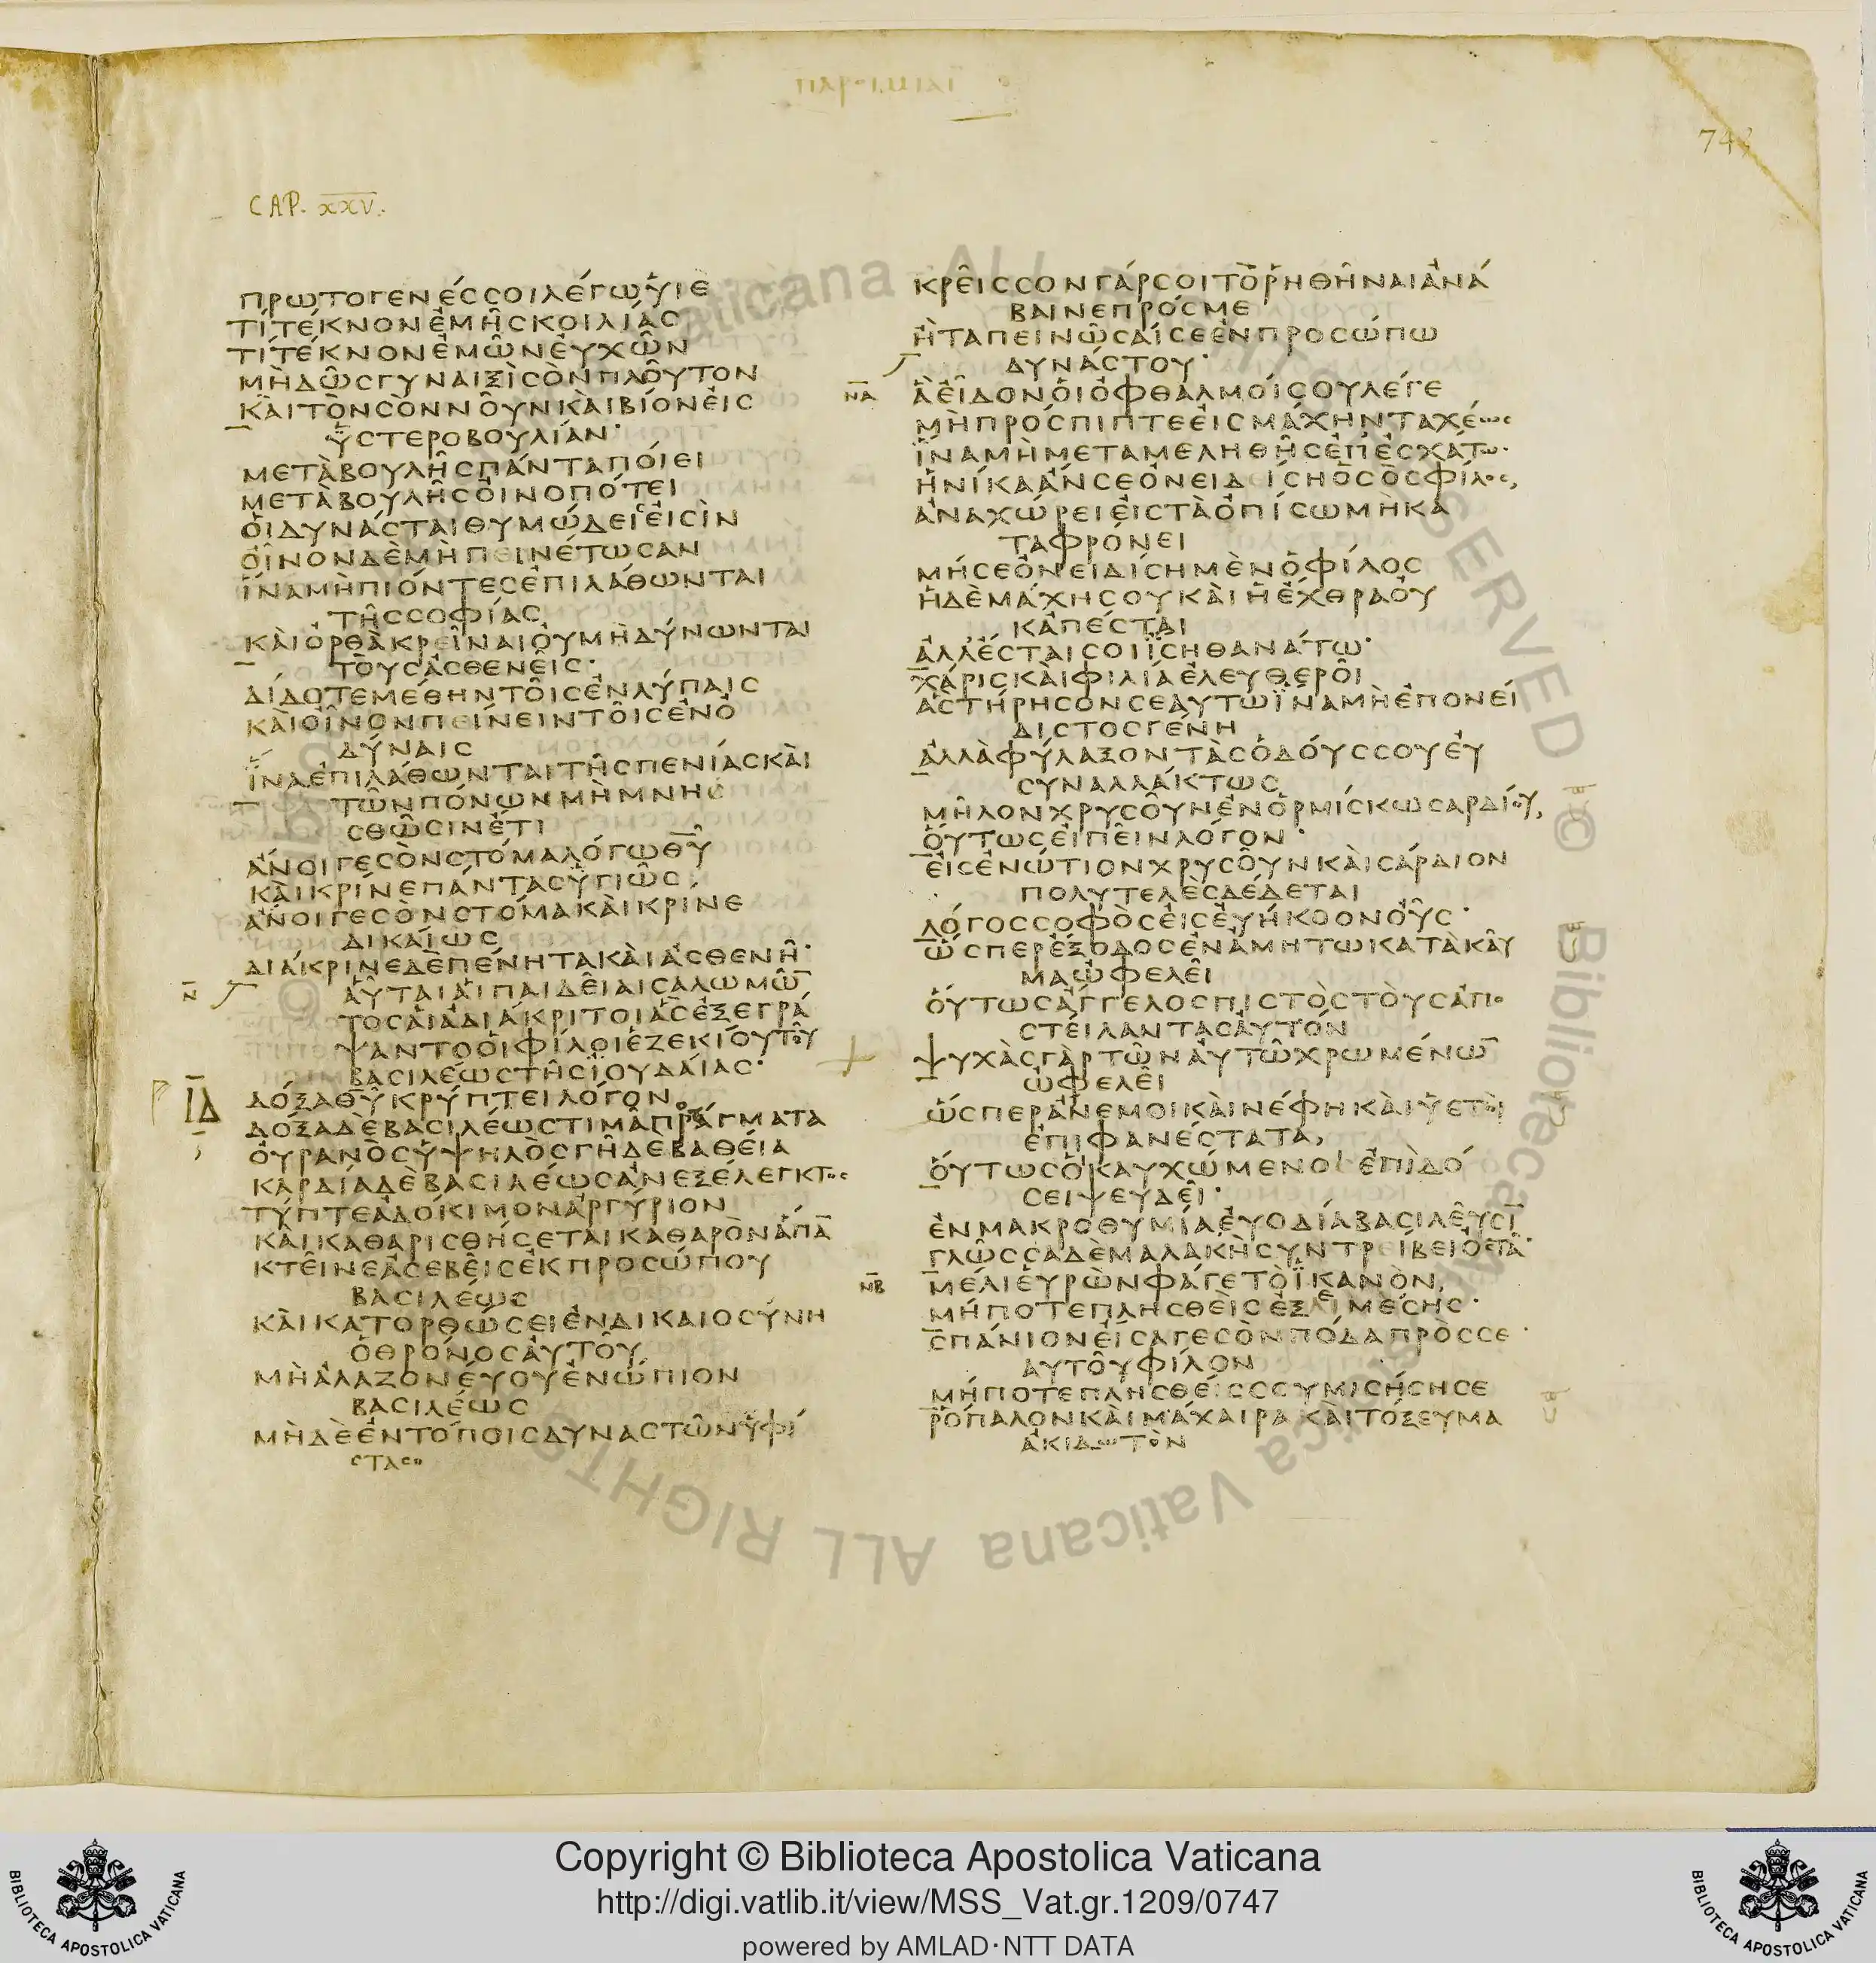 ΠΑΡΟΙΜΙΑΙ
743
CAP. XXV.
ΠΡΩΤΟΓΕΝΕϹϹΟΙΛΕΓΩΥΙΕ
ΤΙΤΕΚΝΟΝΕΜΗϹΚΟΙΛΙΑϹ
ΤΙΤΕΚΝΟΝΕΜΩΝΕΥΧΩΝ
ΜΗΔΩϹΓΥΝΑΙΞΙϹΟΝΠΛΟΥΤΟΝ
ΚΑΙΤΟΝϹΟΝΝΟΥΝΚΑΙΒΙΟΝΕΙϹ
ΥϹΤΕΡΟΒΟΥΛΙΑΝ·
ΜΕΤΑΒΟΥΛΗϹΠΑΝΤΑΠΟΙΕΙ
ΜΕΤΑΒΟΥΛΗϹΟΙΝΟΠΟΤΕΙ
ΟΙΔΥΝΑϹΤΑΙΘΥΜΩΔΕΙϹΕΙϹΙΝ
ΟΙΝΟΝΔΕΜΗΠΕΙΝΕΤΩϹΑΝ
ΙΝΑΜΗΠΙΟΝΤΕϹΕΠΙΛΑΘΩΝΤΑΙ
ΤΗϹϹΟΦΙΑϹ
ΚΑΙΟΡΘΑΚΡΕΙΝΑΙΟΥΜΗΔΥΝΩΝΤΑΙ
ΤΟΥϹΑϹΘΕΝΕΙϹ·
ΔΙΔΟΤΕΜΕΘΗΝΤΟΙϹΕΝΛΥΠΑΙϹ
ΚΑΙΟΙΝΟΝΠΕΙΝΕΙΝΤΟΙϹΕΝΟ
ΔΥΝΑΙϹ
ΙΝΑΕΠΙΛΑΘΩΝΤΑΙΤΗϹΠΕΝΙΑϹΚΑΙ
ΤΩΝΠΟΝΩΝΜΗΜΝΗ
ϹΘΩϹΙΝΕΤΙ
ΑΝΟΙΓΕϹΟΝϹΤΟΜΑΛΟΓΩΘΥ
ΚΑΙΚΡΙΝΕΠΑΝΤΑϹΥΓΙΩϹ,
ΑΝΟΙΓΕϹΟΝϹΤΟΜΑΚΑΙΚΡΙΝΕ
ΔΙΚΑΙΩϹ
ΔΙΑΚΡΙΝΕΔΕΠΕΝΗΤΑΚΑΙΑϹΘΕΝΗ·
Ν ΑΥΤΑΙΑΙΠΑΙΔΕΙΑΙϹΑΛΩΜΩ̅
ΤΟϹΑΙΑΔΙΑΚΡΙΤΟΙΑϹΕΞΕΓΡΑ
ΨΑΝΤΟΟΙΦΙΛΟΙΕΖΕΚΙΟΥΤΟΥ
ΒΑϹΙΛΕΩϹΤΗϹΙΟΥΔΑΙΑϹ·
ΙΔ ΔΟΞΑΘΥΚΡΥΠΤΕΙΛΟΓΟΝ
ΔΟΞΑΔΕΒΑϹΙΛΕΩϹΤΙΜΑΠΡΑΓΜΑΤΑ
ΟΥΡΑΝΟϹΥΨΗΛΟϹΓΗΔΕΒΑΘΕΙΑ
ΚΑΡΔΙΑΔΕΒΑϹΙΛΕΩϹΑΝΕΞΕΛΕΓΚΤΟϹ
ΤΥΠΤΕΑΔΟΚΙΜΟΝΑΡΓΥΡΙΟΝ
ΚΑΙΚΑΘΑΡΙϹΘΗϹΕΤΑΙΚΑΘΑΡΟΝΑΠΑ̅
ΚΤΕΙΝΕΑϹΕΒΕΙϹΕΚΠΡΟϹΩΠΟΥ
ΒΑϹΙΛΕΩϹ
ΚΑΙΚΑΤΟΡΘΩϹΕΙΕΝΔΙΚΑΙΟϹΥΝΗ
ΟΘΡΟΝΟϹΑΥΤΟΥ
ΜΗΑΛΑΖΟΝΕΥΟΥΕΝΩΠΙΟΝ
ΒΑϹΙΛΕΩϹ
ΜΗΔΕΕΝΤΟΠΟΙϹΔΥΝΑϹΤΩΝΥΦΙ
ϹΤΑϹΟ
ΚΡΕΙϹϹΟΝΓΑΡϹΟΙΤΟΡΗΘΗΝΑΙΑΝΑ
ΒΑΙΝΕΠΡΟϹΜΕ
ΗΤΑΠΕΙΝΩϹΑΙϹΕΕΝΠΡΟϹΩΠΩ
ΔΥΝΑϹΤΟΥ·
ΝΑ ΑΕΙΔΟΝΟΙΟΦΘΑΛΜΟΙϹΟΥΛΕΓΕ
ΜΗΠΡΟϹΠΙΠΤΕΕΙϹΜΑΧΗΝΤΑΧΕΩϹ
ΙΝΑΜΗΜΕΤΑΜΕΛΗΘΗϹΕΠΕϹΧΑΤΩ·
ΗΝΙΚΑΑΝϹΕΟΝΕΙΔΙϹΗΟϹΟϹΦΙΛΟϹ,
ΑΝΑΧΩΡΕΙΕΙϹΤΑΟΠΙϹΩΜΗΚΑ
ΤΑΦΡΟΝΕΙ
ΜΗϹΕΟΝΕΙΔΙϹΗΜΕΝΟΦΙΛΟϹ
ΗΔΕΜΑΧΗϹΟΥΚΑΙΗΕΧΘΡΑΟΥ
ΚΑΠΕϹΤΑΙ
ΑΛΛΕϹΤΑΙϹΟΙΙϹΗΘΑΝΑΤΩ·
ΧΑΡΙϹΚΑΙΦΙΛΙΑΕΛΕΥΘΕΡΟΙ
ΑϹΤΗΡΗϹΟΝϹΕΑΥΤΩΙΝΑΜΗΕΠΟΝΕΙ
ΔΙϹΤΟϹΓΕΝΗ
ΑΛΛΑΦΥΛΑΞΟΝΤΑϹΟΔΟΥϹϹΟΥΕΥ
ϹΥΝΑΛΛΑΚΤΩϹ
ΜΗΛΟΝΧΡΥϹΟΥΝΕΝΟΡΜΙϹΚΩϹΑΡΔΙΟΥ,
ΟΥΤΩϹΕΙΠΕΙΝΛΟΓΟΝ·
ΕΙϹΕΝΩΤΙΟΝΧΡΥϹΟΥΝΚΑΙϹΑΡΔΙΟΝ
ΠΟΛΥΤΕΛΕϹΔΕΔΕΤΑΙ
ΛΟΓΟϹϹΟΦΟϹΕΙϹΕΥΗΚΟΟΝΟΥϹ·
ΩϹΠΕΡΕΞΟΔΟϹΕΝΑΜΗΤΩΚΑΤΑΚΑΥ
ΜΑΩΦΕΛΕΙ
ΟΥΤΩϹΑΓΓΕΛΟϹΠΙϹΤΟϹΤΟΥϹΑΠΟ
ϹΤΕΙΛΑΝΤΑϹΑΥΤΟΝ
ΨΥΧΑϹΓΑΡΤΩΝΑΥΤΩΧΡΩΜΕΝΩ̅
ΩΦΕΛΕΙ
ΩϹΠΕΡΑΝΕΜΟΙΚΑΙΝΕΦΗΚΑΙΥΕΤΟΙ
ΕΠΙΦΑΝΕϹΤΑΤΑ,
ΟΥΤΩϹΟΚΑΥΧΩΜΕΝΟϹΕΠΙΔΟ
ϹΕΙΨΕΥΔΕΙ·
ΕΝΜΑΚΡΟΘΥΜΙΑΕΥΟΔΙΑΒΑϹΙΛΕΥϹΙ̅
ΓΛΩϹϹΑΔΕΜΑΛΑΚΗϹΥΝΤΡΕΙΒΕΙΟϹΤΑ̅·
ΝΒ ΜΕΛΙΕΥΡΩΝΦΑΓΕΤΟΙΚΑΝΟΝ,
ΜΗΠΟΤΕΠΛΗϹΘΕΙϹΕΞΕΜΕϹΗϹ·
ϹΠΑΝΙΟΝΕΙϹΑΓΕϹΟΝΠΟΔΑΠΡΟϹϹΕ
ΑΥΤΟΥΦΙΛΟΝ
ΜΗΠΟΤΕΠΛΗϹΘΕΙϹϹΟΥΜΙϹΗϹΗϹΕ
ΡΟΠΑΛΟΝΚΑΙΜΑΧΑΙΡΑΚΑΙΤΟΞΕΥΜΑ
ΑΚΙΔΩΤΟΝ
Copyright © Biblioteca Apostolica Vaticana
http://digi.vatlib.it/view/MSS_Vat.gr.1209/0747
powered by AMLAD·NTT DATA
BIBLIOTECA APOSTOLICA VATICANA
BIBLIOTECA APOSTOLICA VATICANA